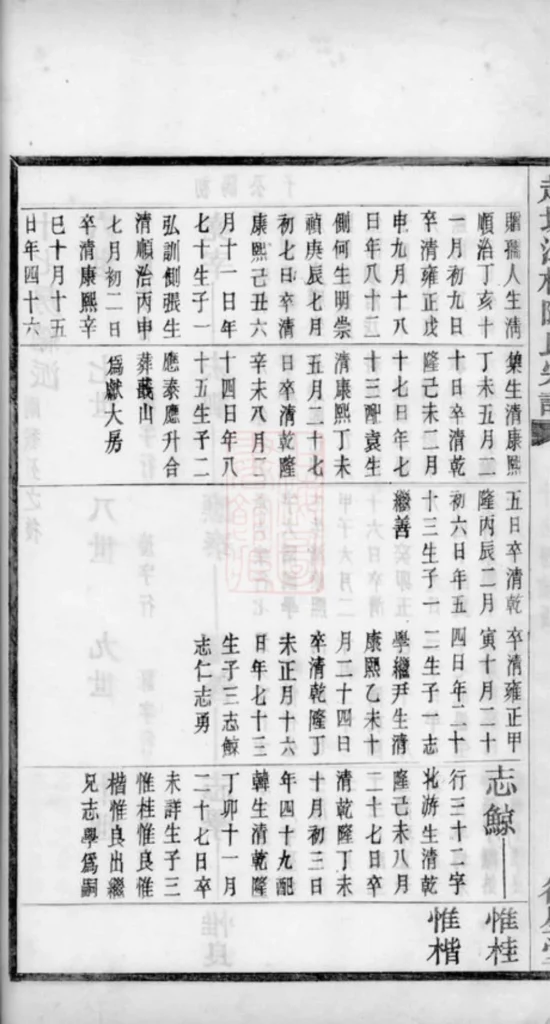 贈孺人生清
順治丁亥十
一月初九日
卒清雍正戊
申九月十八
日年八十二
側何生明崇
禎庚辰七月
初七日卒清
康熙己丑六
月十一日年
七十生子一
弘訓側張生
清順治丙申
七月初二日
卒清康熙辛
巳十月十五
日年四十六
樂生清康熙
丁未五月二
十日卒清乾
隆己未二月
十七日年七
十三配袁生
清康熙丁未
五月二十七
日卒清乾隆
辛未八月二
十四日年八
十五生子二
應泰應升合
葬蕺山
爲獻大房
五日卒清乾
隆丙辰二月
初六日年五
十三生子一
繼善
卒清雍正甲
寅十月二十
四日年二十
二生子一志
學繼尹生清
康熙乙未十
月二十四日
卒清乾隆丁
未正月十六
日年七十三
生子三志鯨
志仁志勇
志鯨
行三十二字
北游生清乾
隆己未八月
二十七日卒
清乾隆丁未
十月初三日
年四十九配
韓生清乾隆
丁卯十一月
二十七日卒
未詳生子三
惟桂惟良惟
楷惟良出繼
兄志學爲嗣
惟桂
惟楷